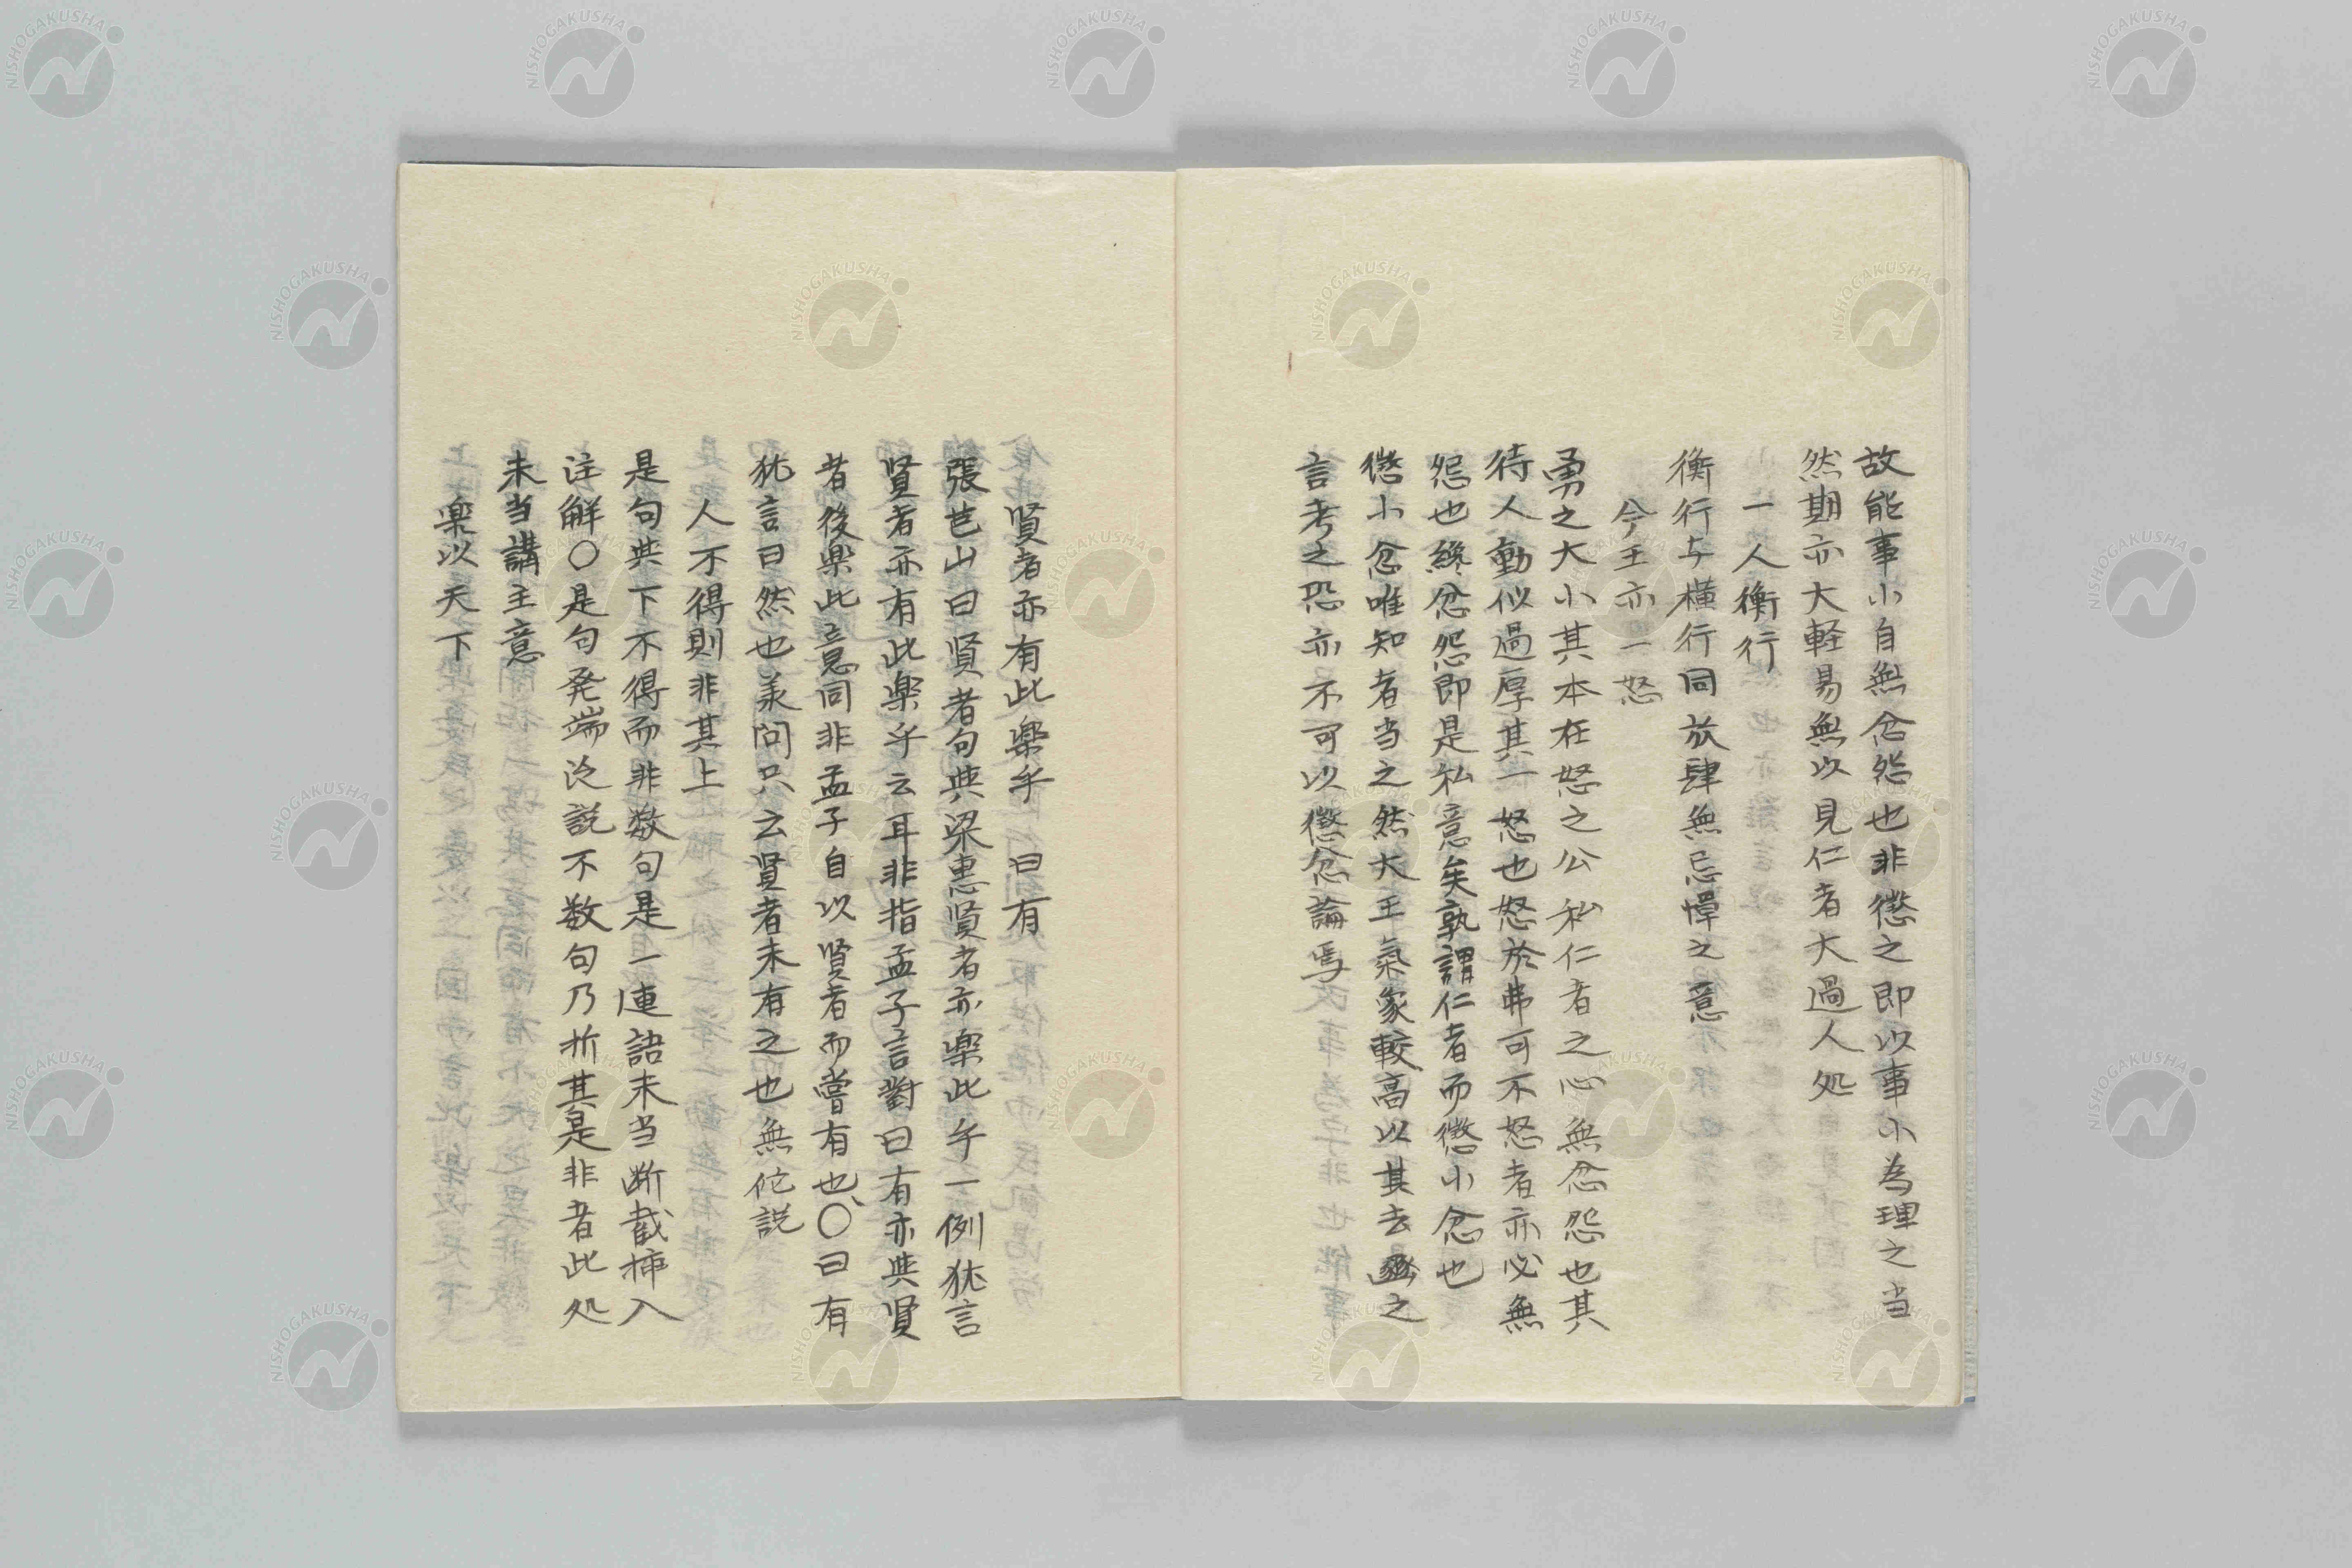 故能事小自無忿怨也非懲之即以事小為理之当
然期亦大軽易無以見仁者大過人処
一人衡行
衡行与横行同放肆無忌憚之意
今王亦一怒
勇之大小其本在怒之公私仁者之心無忿怨也其
待人動似過厚其一怒也怒於弗可不怒者亦必無
怨也終忿怨即是私意矣孰謂仁者而懲小忿也
懲小忿唯知者当之然大王気象較高以其去邠之
言考之恐亦不可以懲忿論焉
賢者亦有此楽乎 曰有
張芭山曰賢者句與梁恵賢者亦楽此乎一例猶言
賢者亦有此楽乎云耳非指孟子言對曰有亦與賢
者後楽此意同非孟子自以賢者而嘗有也〇曰有
猶言曰然也羕問只云賢者未有之也無佗説
人不得則非其上
是句共下不得而非数句是一連語未当断截挿入
注解〇是句発端泛説不数句乃折其是非者此処
未当講主意
楽以天下
NISHOGAKUSHA